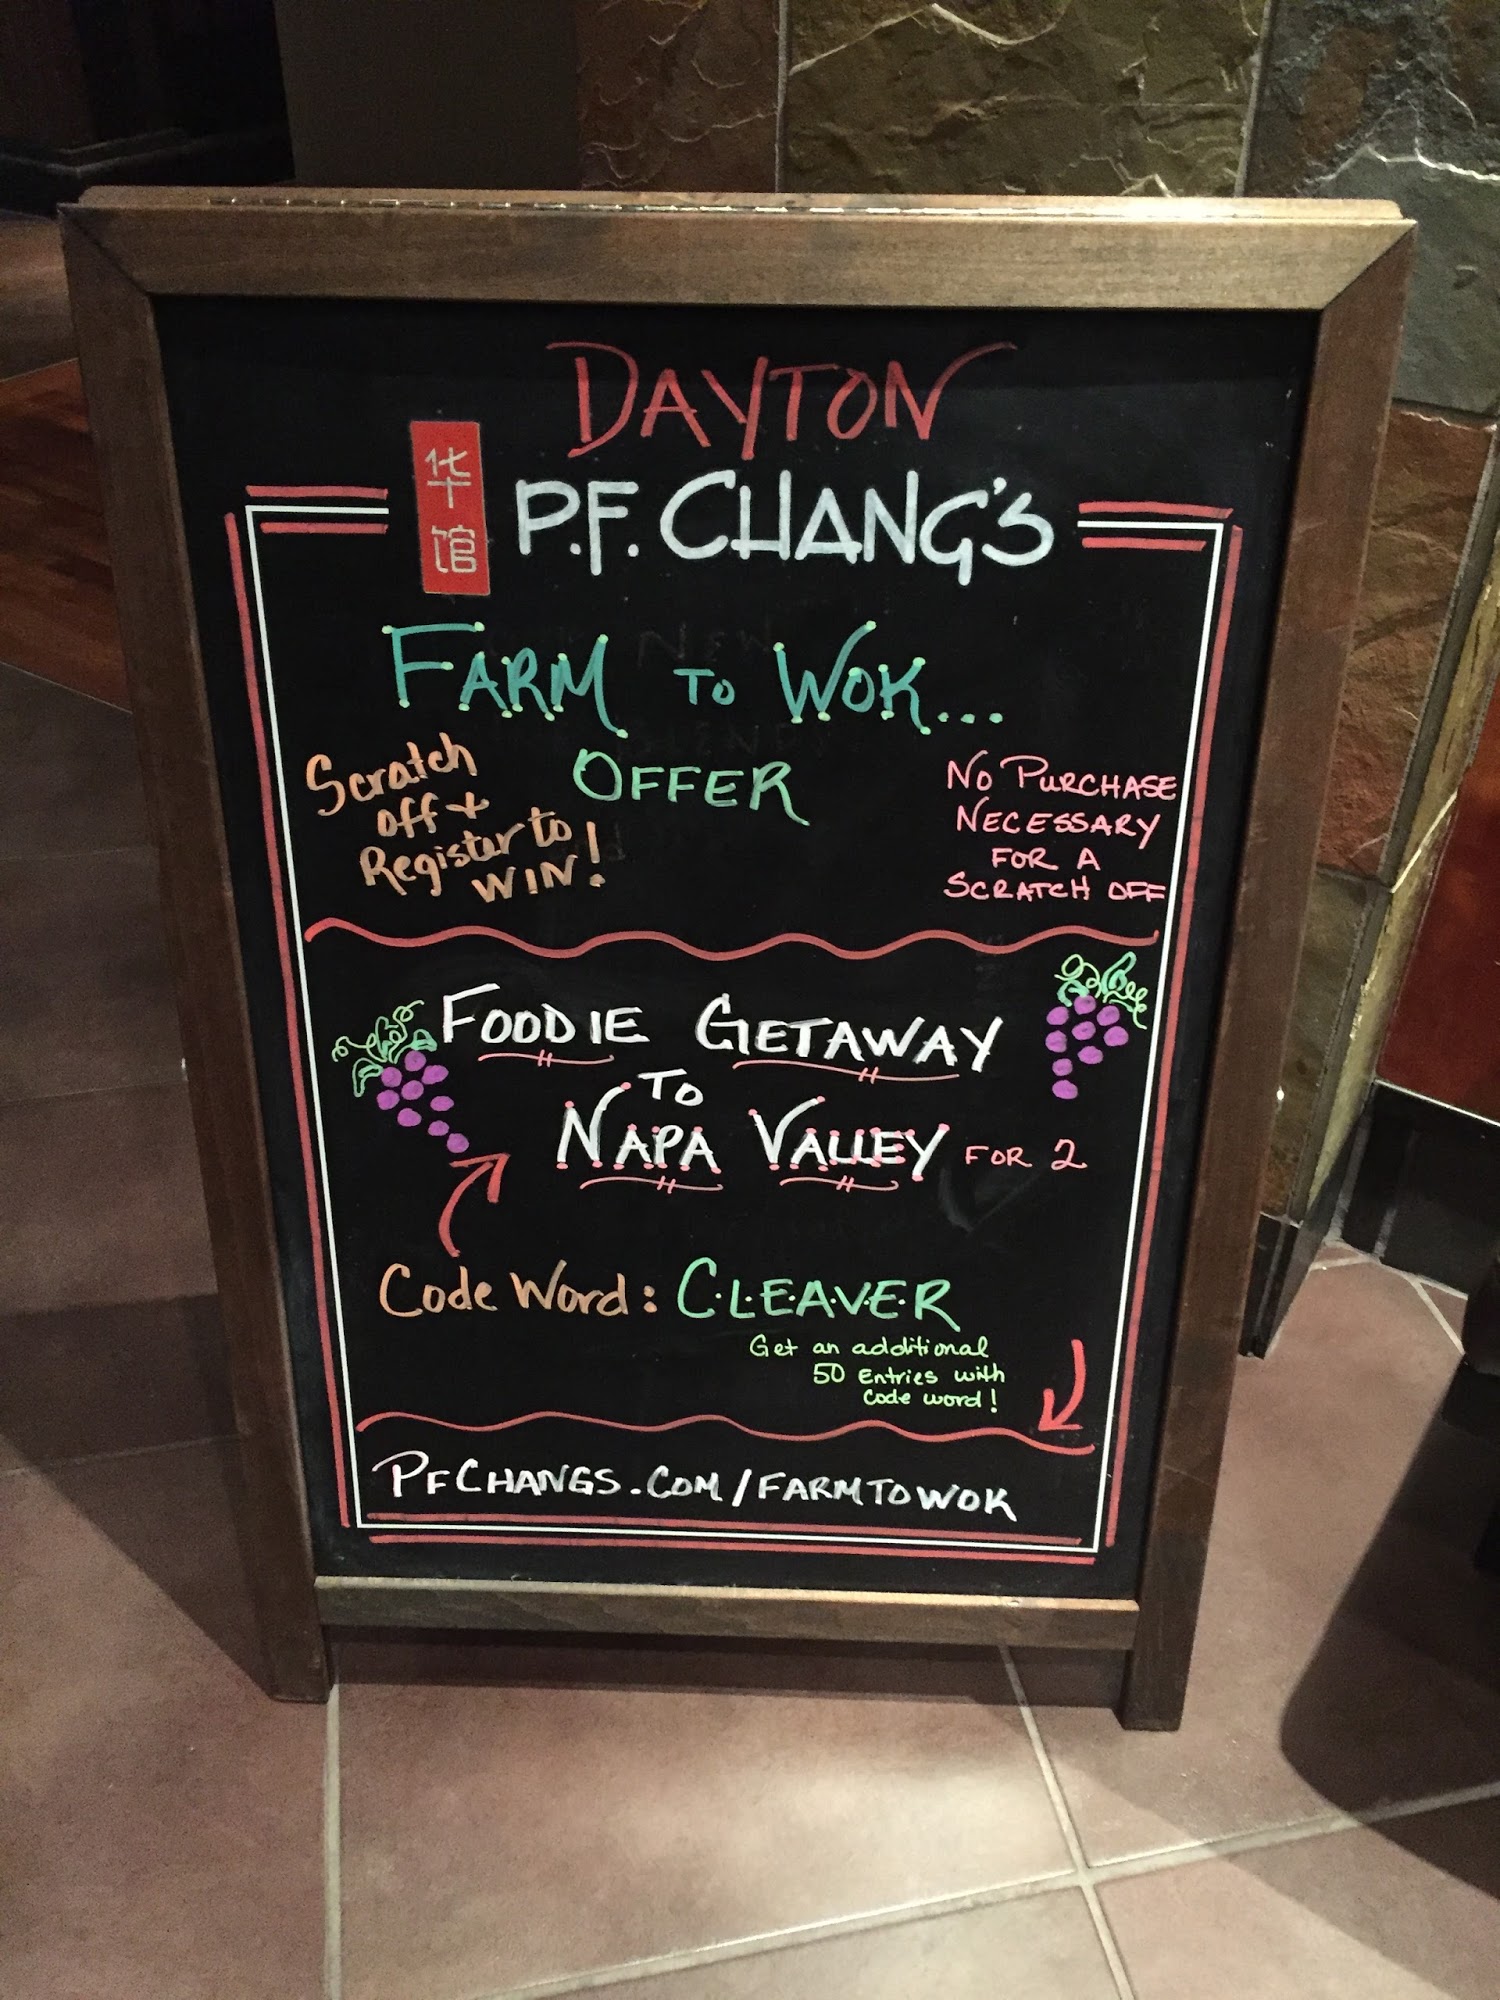 DAYTON
华馆
P.F. CHANG'S
FARM TO WOK...
OFFER
Scratch
off +
Register to
WIN!
NO PURCHASE
NECESSARY
FOR A
SCRATCH OFF
FOODIE GETAWAY
TO
NAPA VALLEY FOR 2
Code Word: C.L.E.A.V.E.R
Get an additional
50 Entries with
Code word!
PFCHANGS.COM/FARMTOWOK